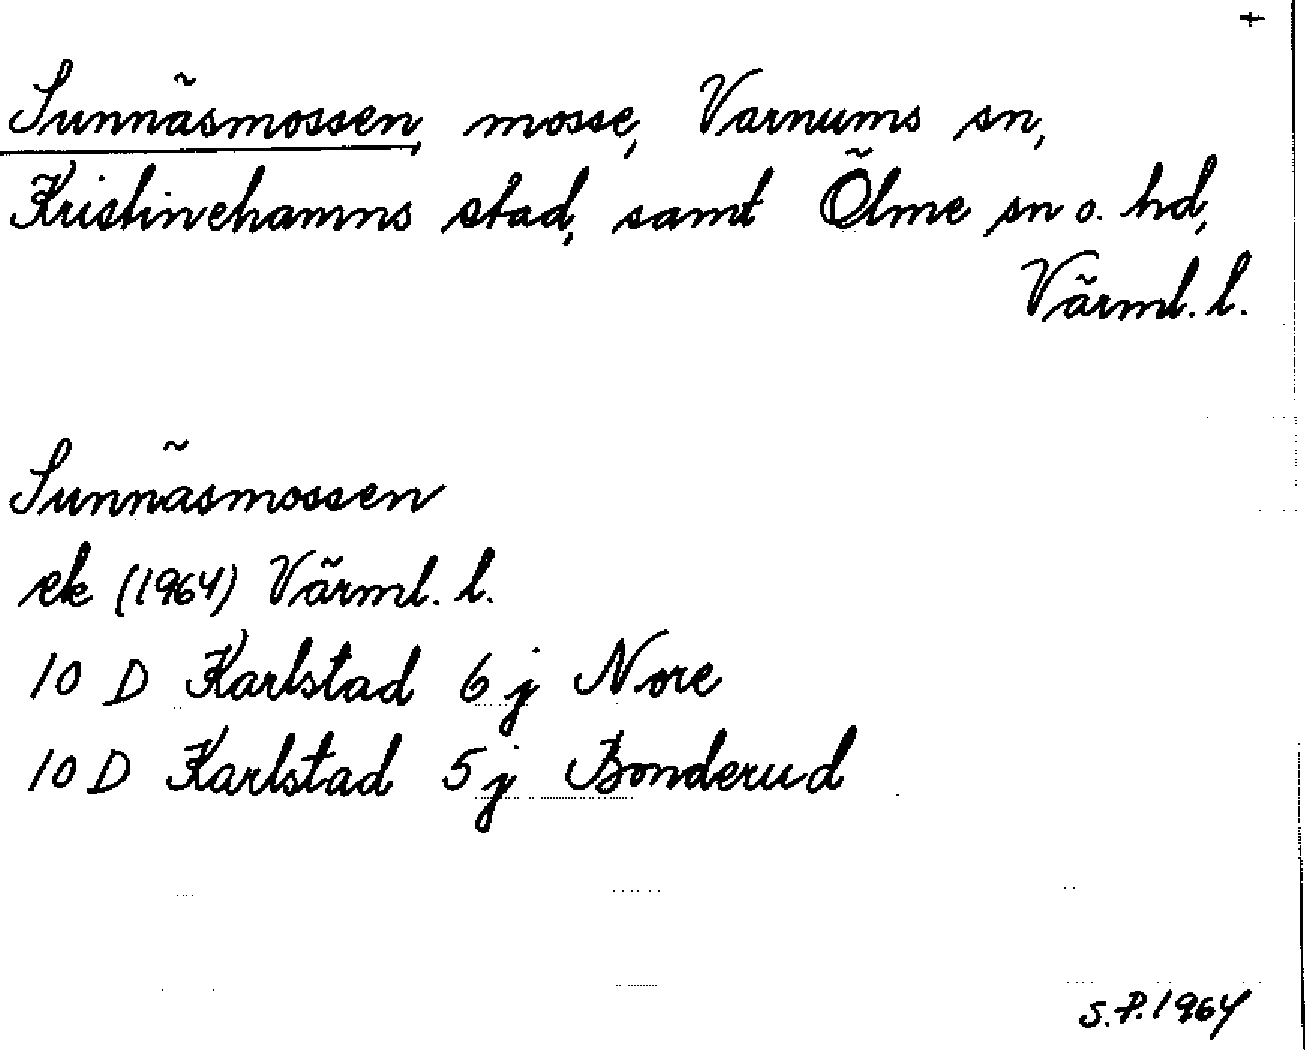 +
Sunnäsmossen, mosse, Varnums sn,
Kristinehamns stad, samt Ölme sn o. hd,
Värml. l.
Sunnäsmossen
ek (1964) Värml. l.
10 D Karlstad 6 j Nore
10 D Karlstad 5 j Bonderud
S.P. 1964